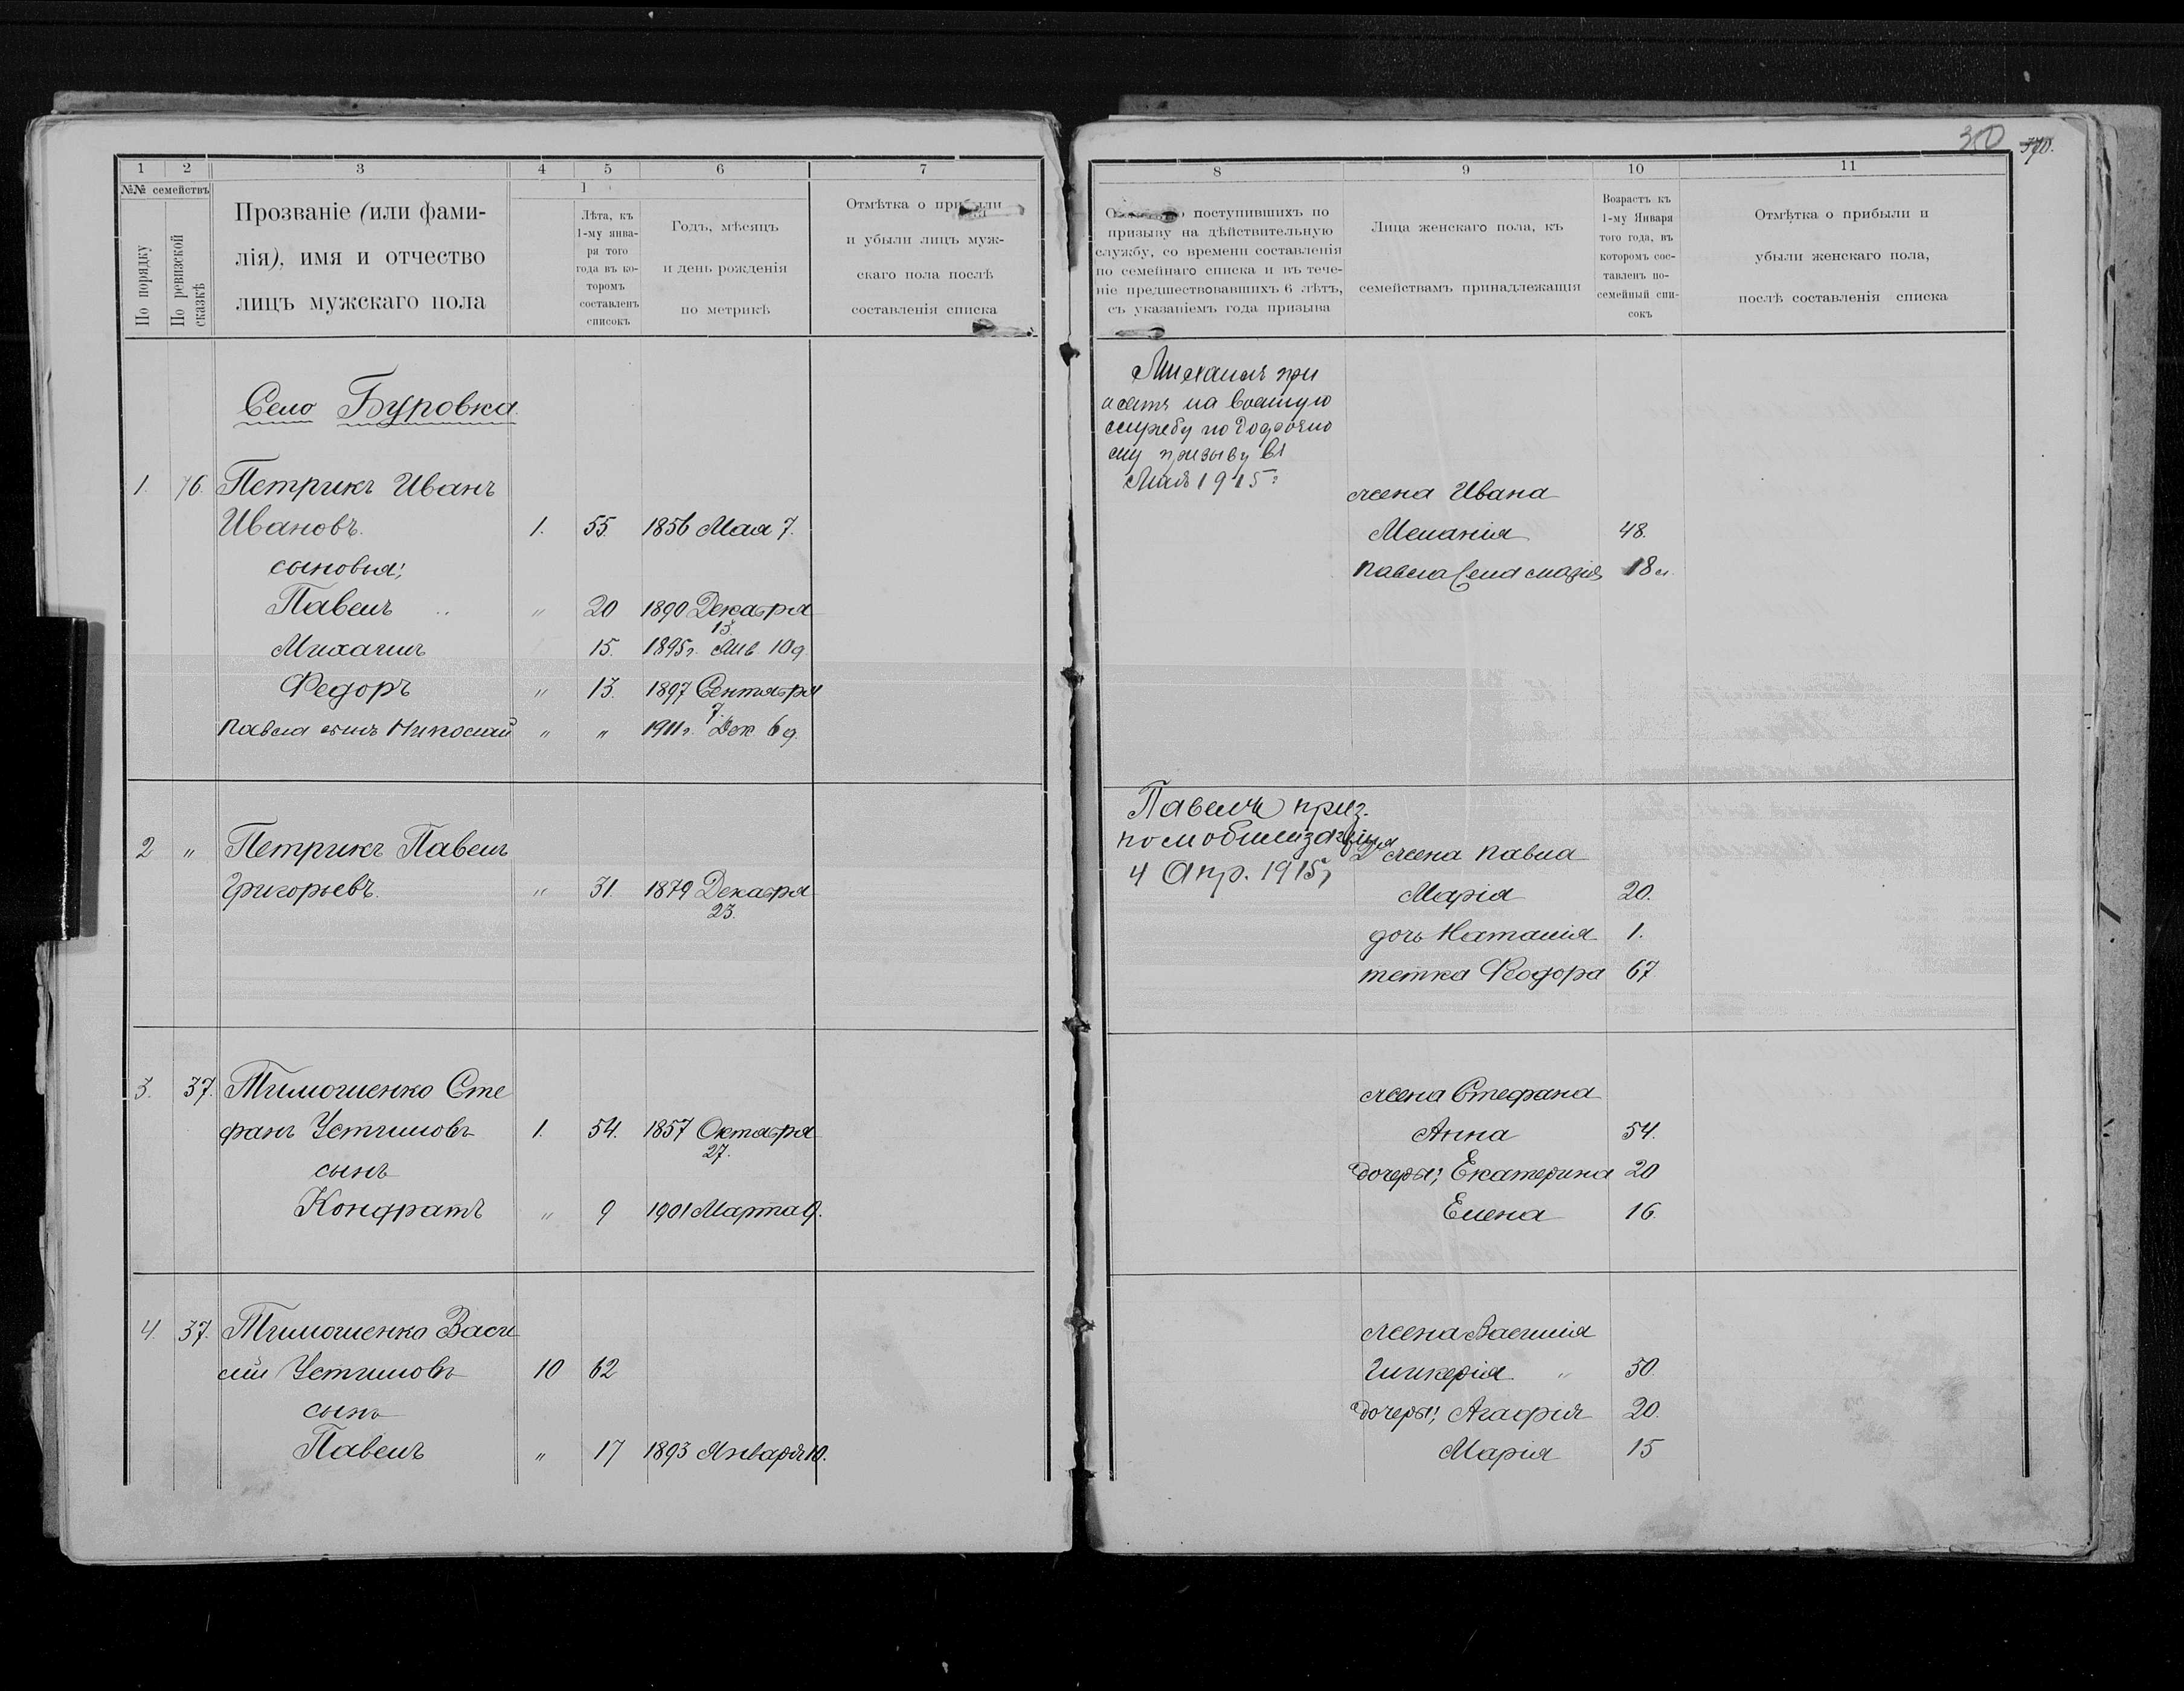 30 370.
1 2 3 4 5 6 7
№№ семействъ
По порядку
По ревизской сказкѣ
Прозваніе (или фами-
лія), имя и отчество
лицъ мужскаго пола
1
Лѣта, къ
1-му янва-
ря того
года въ ко-
торомъ
составленъ
списокъ
Годъ, мѣсяцъ
и день рожденія
по метрикѣ
Отмѣтка о прибыли
и убыли лицъ муж-
скаго пола послѣ
составленія списка
Село Буровка
1. 76. Петрикъ Иванъ
Ивановъ. 1. 55. 1856 Мая 7.
сыновья;
Павелъ " 20 1890 Декабря
13.
Михаилъ 15. 1895г. Янв. 10д
Федоръ " 13. 1897 Сентября
7.
Павла сынъ Николай " " 1911г. Дек 6д.
2 " Петрикъ Павелъ
Григорьевъ. " 31. 1879 Декабря
23.
3. 37. Тимошенко Сте
фанъ Устимовъ 1. 54. 1857 Октября
27.
сынъ
Кондратъ " 9 1901 Марта 9.
4. 37. Тимошенко Васи
лій Устимовъ 10 62
сынъ
Павелъ " 17 1893 Января 10.
8 9 10 11
поступившихъ по
призыву на дѣйствительную
службу, со времени составленія
по семейнаго списка и въ тече-
ніе предшествовавшихъ 6 лѣтъ,
съ указаніемъ года призыва
Лица женскаго пола, къ
семействамъ принадлежащія
Возрастъ къ
1-му Января
того года, въ
которомъ сос-
тавленъ по-
семейный спи-
сокъ
Отмѣтка о прибыли и
убыли женскаго пола,
послѣ составленія списка
Михаилъ при
нятъ на военную
службу по досрочно
му призыву въ
1915г
жена Ивана
Меланія 48.
Павла жена 18 л.
Павелъ приз.
по мобилизаціи
4 Апр. 1915г
жена Павла
Марія 20.
дочь Наталія 1.
тетка Феодора 67
жена Стефана
Анна 54.
дочери; Екатерина 20
Елена 16.
жена Василія
Гликерія " 50.
дочери; Агафія 20.
Марія 15